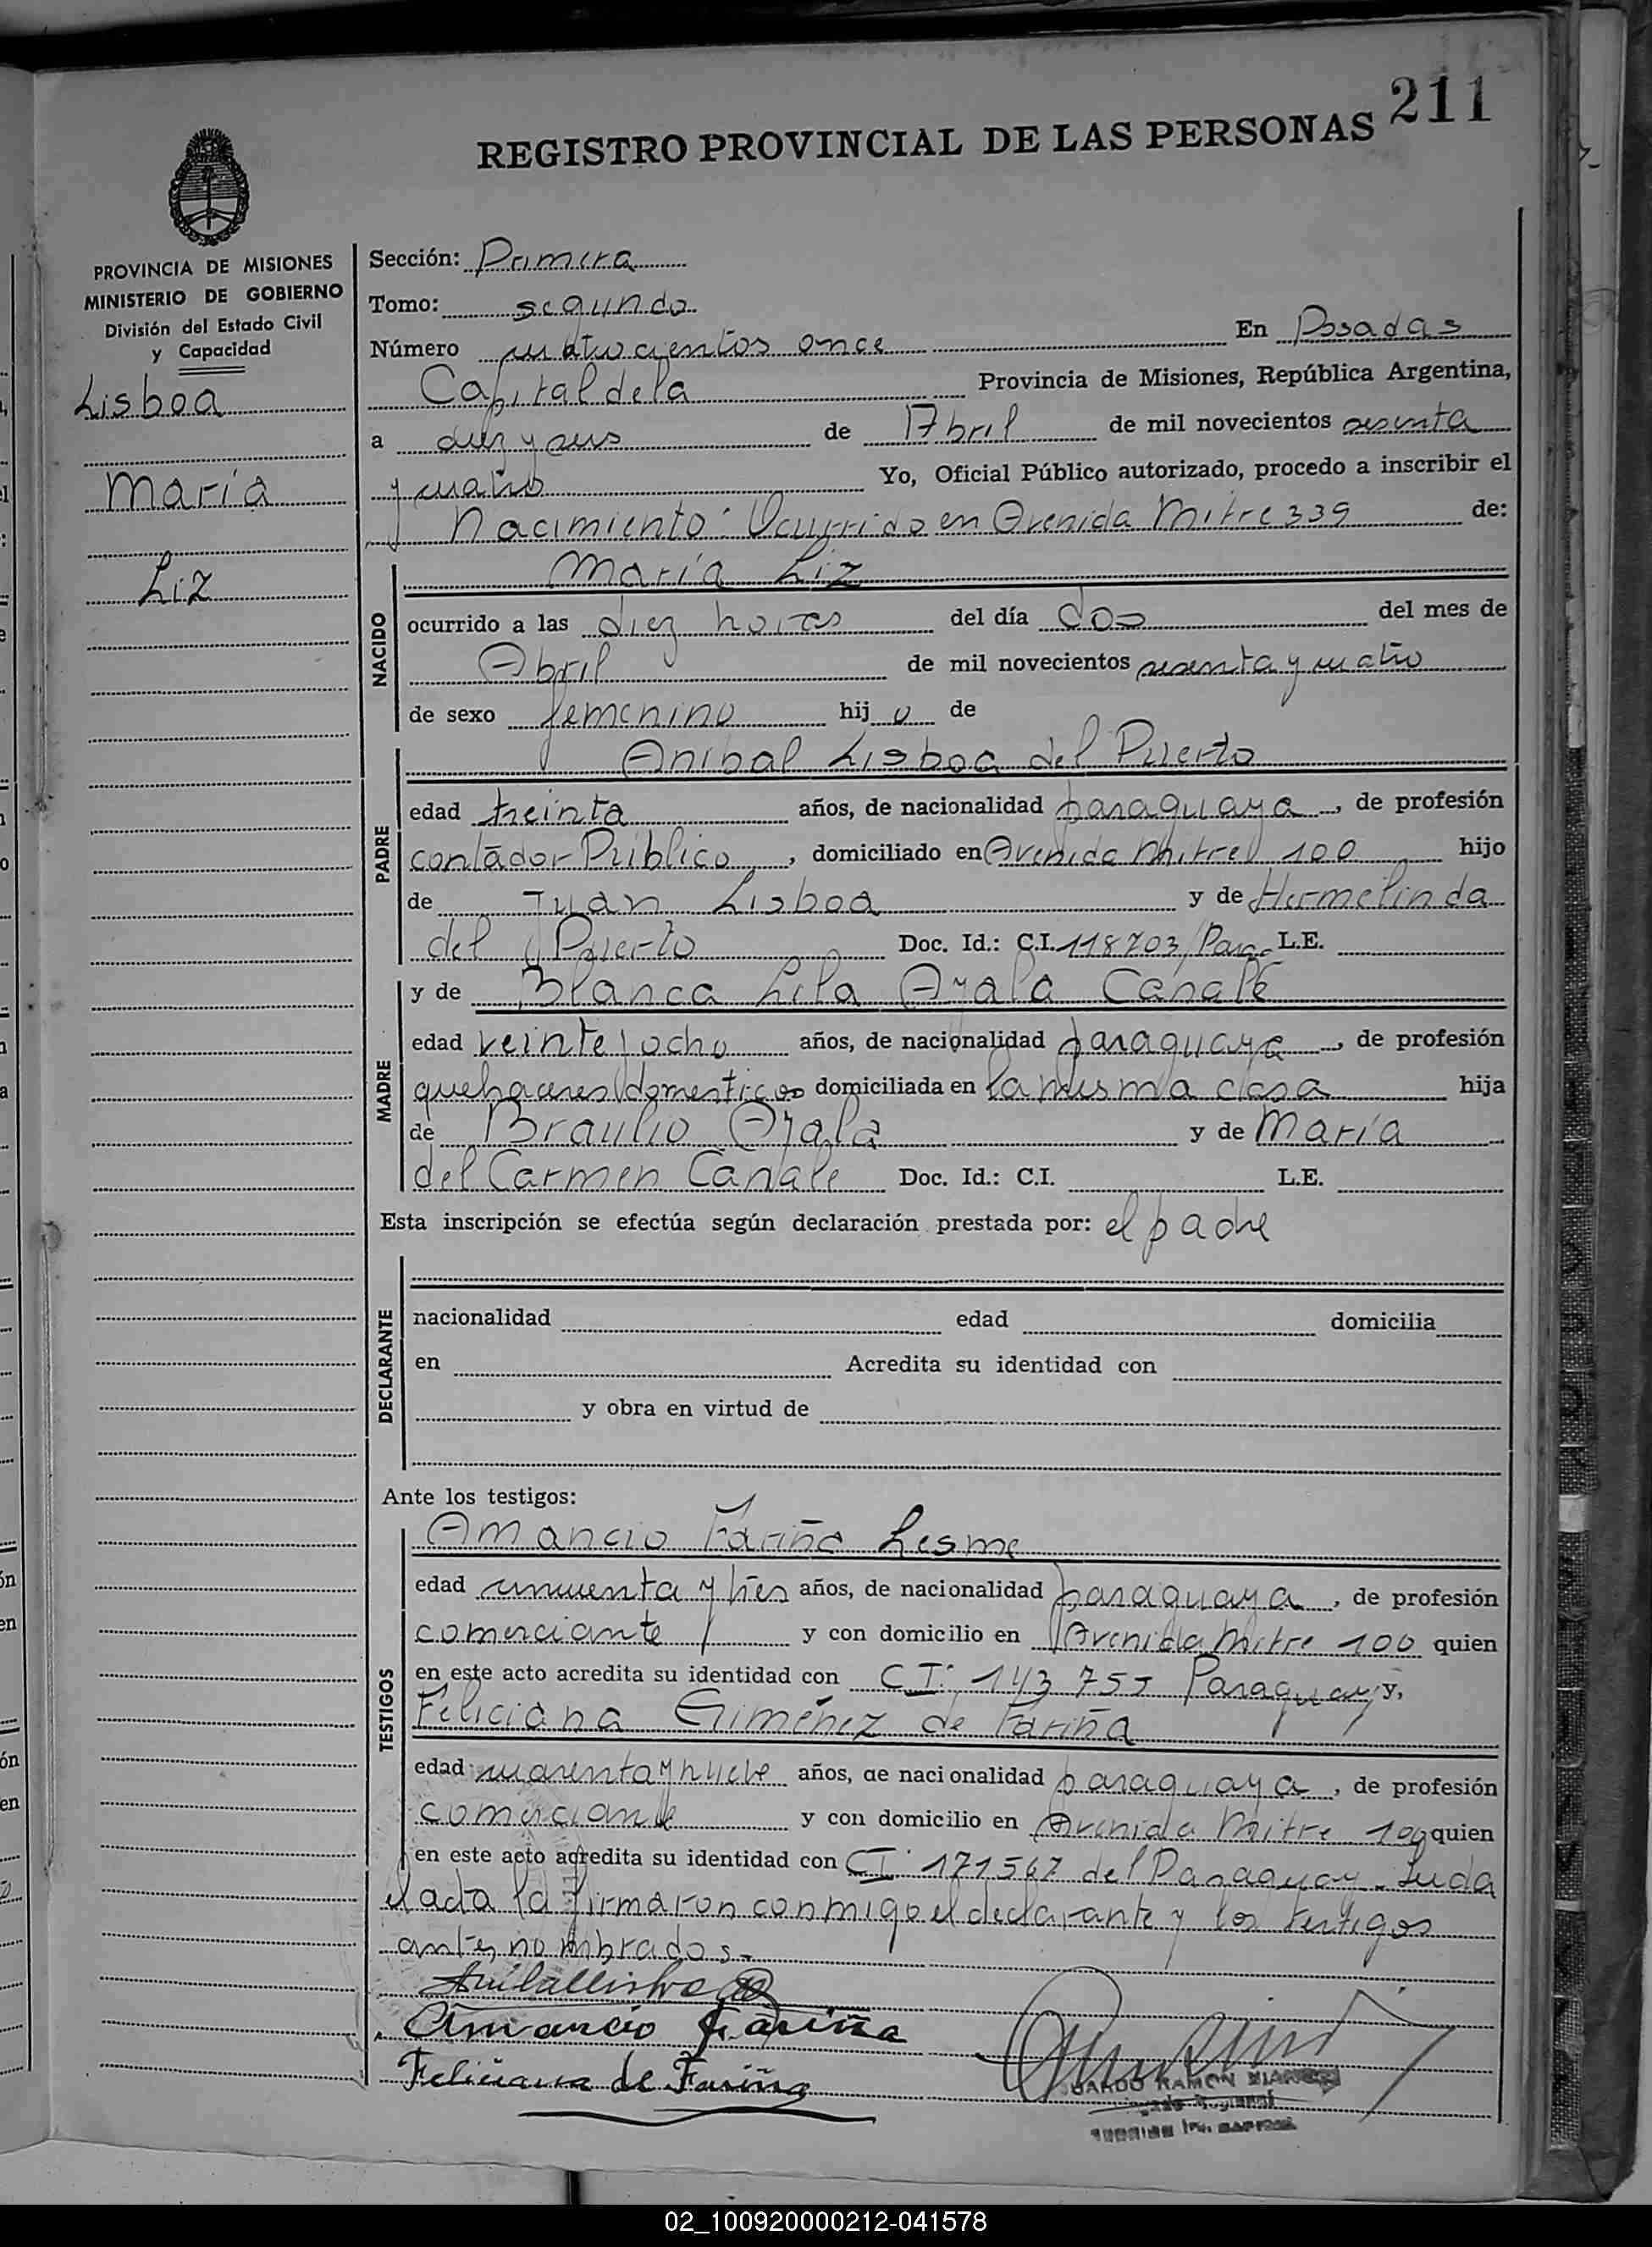 211
REGISTRO PROVINCIAL DE LAS PERSONAS
PROVINCIA DE MISIONES
MINISTERIO DE GOBIERNO
División del Estado Civil
y Capacidad
Lisboa
María
Liz
Sección: Primera
Tomo: segundo
Número cuatrocientos once En Posadas
Capital de la Provincia de Misiones, República Argentina,
a diez y seis de Abril de mil novecientos sesenta
y cuatro Yo, Oficial Público autorizado, procedo a inscribir el
Nacimiento: Ocurrido en Avenida Mitre 339 de:
NACIDO
María Liz
ocurrido a las diez horas del día dos del mes de
Abril de mil novecientos sesenta y cuatro
de sexo femenino hij a de
PADRE
Anibal Lisboa del Puerto
edad treinta años, de nacionalidad paraguaya, de profesión
contador Público, domiciliado en Avenida Mitre 100 hijo
de Juan Lisboa y de Hermelinda
del Puerto Doc. Id.: C.I. 118703/Para L.E.
MADRE
y de Blanca Lila Ayala Canale
edad veinte y ocho años, de nacionalidad paraguaya, de profesión
quehaceres domesticos domiciliada en la misma casa hija
de Braulio Ayala y de María
del Carmen Canale Doc. Id.: C.I. L.E.
Esta inscripción se efectúa según declaración prestada por: el padre
DECLARANTE
nacionalidad edad domicilia
en Acredita su identidad con
y obra en virtud de
Ante los testigos:
TESTIGOS
Amancio Fariña Lesme
edad cincuenta y tres años, de nacionalidad paraguaya, de profesión
comerciante y con domicilio en Avenida Mitre 100 quien
en este acto acredita su identidad con CI: 143755 Paraguay y,
Feliciana Giménez de Fariña
edad cuarenta y nueve años, de nacionalidad paraguaya, de profesión
comerciante y con domicilio en Avenida Mitre 100 quien
en este acto acredita su identidad con CI: 171567 del Paraguay. Leida
el acta la firmaron conmigo el declarante y los testigos
antes nombrados.-
Amancio Fariña
Feliciana de Fariña
RAMON
02_100920000212-041578